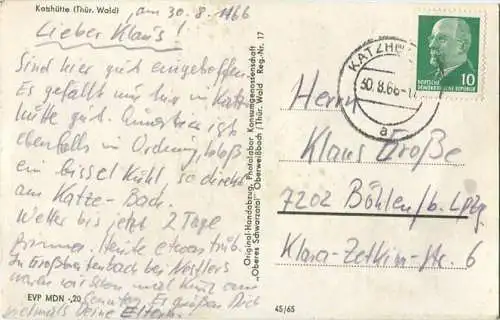 Katzhütte (Thür. Wald)
am 30.8.1966
Lieber Klaus!
Sind hier gut eingetroffen.
Es gefällt uns hier in Katz-
hütte gut. Quartier ist
ebenfalls in Ordnung, bloß
ein bissel kühl, so direkt
am Katze-Bach.
Wetter bis jetzt 2 Tage
prima. Heute etwas trüb.
In Großbreitenbach bei
waren wir schon mal kurz am
Sonntag. Es grüßen Dich
vielmals Deine Eltern.
EVP MDN -,20
Original-Handabzug, Photolabor Konsumgenossenschaft
"Oberes Schwarzatal" Oberweißbach/Thür. Wald Reg.-Nr. 17
45/65
KATZHÜ
30.8.66-1
a
DEUTSCHE
DEMOKRATISCHE REPUBLIK
10
Herrn
Klaus Große
7202 Böhlen/b. Lpzg
Klara-Zetkin-Str. 6